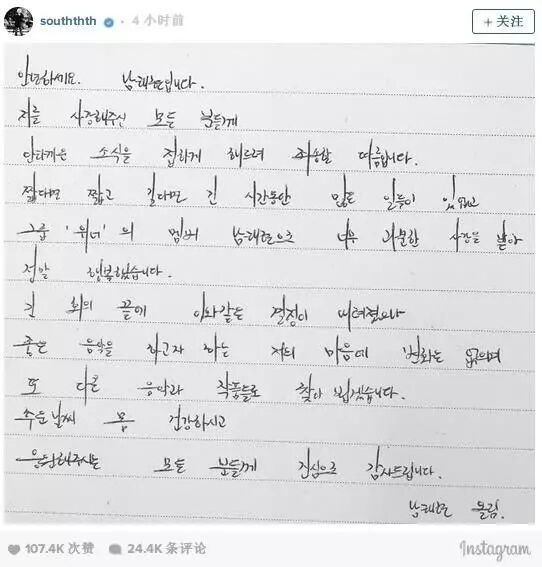 southhth · 4 小时前
+ 关注
안녕하세요. 남태현입니다.
저를 사랑해주신 모든 분들께
안타까운 소식을 접하게 해드려 죄송할 따름입니다.
짧다면 짧고 길다면 긴 시간동안 많은 일들이 있었고
그룹 '위너'의 멤버 남태현으로 너무 과분한 사랑을 받아
정말 행복했습니다.
긴 회의 끝에 이와같은 결정이 내려졌으나
좋은 음악을 하고자 하는 저의 마음에 변화는 없으며
또 다른 음악과 작품들로 찾아 뵙겠습니다.
추운날씨 몸 건강하시고
응원해주시는 모든 분들께 진심으로 감사드립니다.
남태현 올림.
107.4K 次赞 24.4K 条评论 Instagram